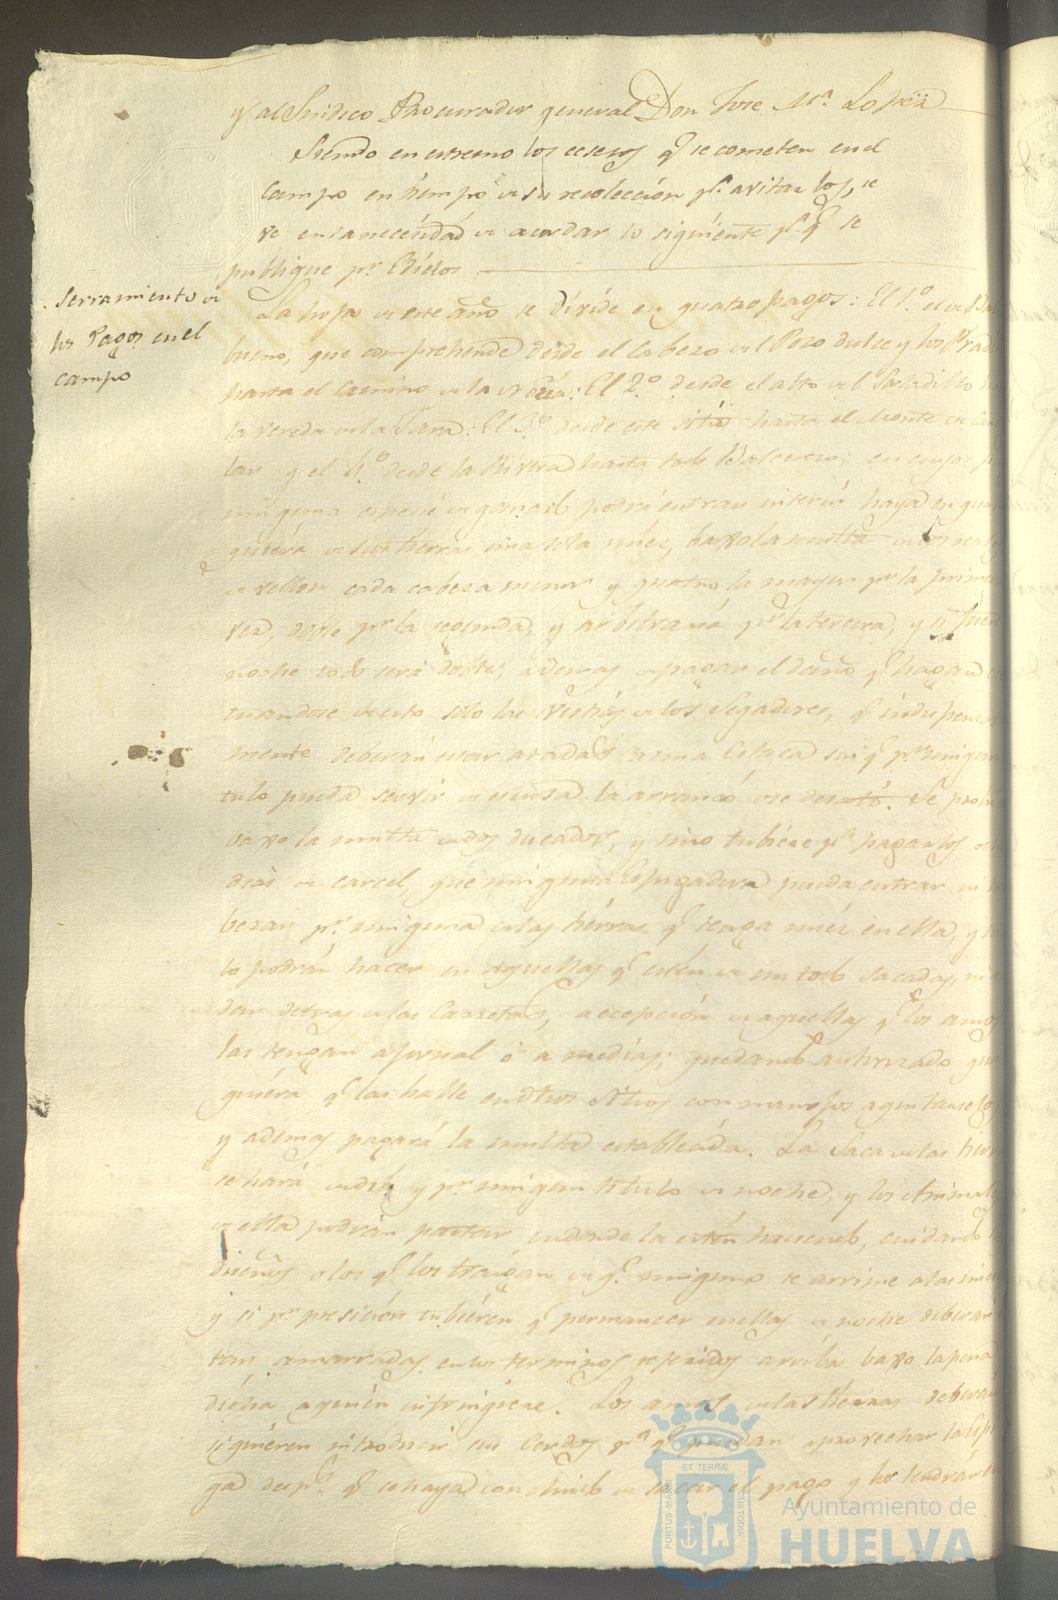 y al Sindico Procurador general Don Jose Mª Lopez
Siendo en estremo los ecsesos q.e se cometen en el
campo en tiempo de su recolección p.a avitar los, se
ve en la necesidad de acordar lo siguiente p.a q.e se
publique p.r Edictos
Serramiento de
los Pagos en el
campo
La hoja de este año se divide en quatro pagos: El 1.º el de
bueno, que comprehende desde el Cabezo del Pozo dulce y los
hasta el Camino de la : El 2.º desde el alto del Saladillo
la vereda de la Jara: El 3.º desde este sitio hasta el Monte de
y el 4.º desde la Rivera hasta todo : en cuyos
ninguna especie de ganado podrá entrar interin haya en
quiera de sus tierras una sola mies, baxo la multa de dos
de vellon cada cabeza menor y quatro la mayor p.r la
vez, doble p.r la segunda, y arbitraria p.r la tercera, y si
noche todo será doble; ademas de pagar el daño q.e hagan
tuandose de esto solo las vestias de los Segadores, q.e
mente deberán estar atadas a una Estaca sin q.e p.r
tulo pueda servir de escusa la arrancó o se desató. Se
baxo la multa de dos ducados, y si no tubiere p.a pagarlos
dias de carcel, que ninguna Espigadera pueda entrar ni
p.r ninguna de las tierras q.e tenga mies en ella, y
lo podrán hacer en aquellas q.e estén de un todo sacadas,
detras de las Carretas, a ecepción de aquellas q.e los amos
las tengan a jornal ó a medias; quedando autorizado
quiera q.e las halle en otros sitios con manojos a quitarselos
y ademas pagará la multa establecida. La Saca de las
se hará de dia y p.r ningun titulo de noche, y los Animales
de ella podrán pastar en donde la estén haciendo, cuidando
dueños o los q.e los traigan de q.e ninguno se arrime a las
y si p.r presición tubieren q.e permanecer en ellas de noche deberan
amarradas en los terminos referidos arriba baxo la pena
dicha a quien infringiere. Los amos de las tierras deberán
si quieren introducir sus Cerdos p.a q.e puedan aprovechar la
ga desp.s q.e se haya concluido de sacar el pago y los tendrán
PORTUS MARIS ET TERRÆ CUSTODIA
Ayuntamiento de
HUELVA